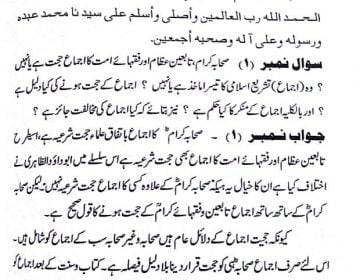 الحمد الله رب العالمين وأصلي وأسلم على سيدنا محمد عبده
ورسوله وعلى آله وصحبه أجمعين.
سوال نمبر (۱) ۔ صحابہ کرام، تابعین عظام اور فقہائے امت کا اجماع حجت ہے یا نہیں
؟ وہ (اجماع) تشریع اسلامی کا تیسرا ماخذ ہے یا نہیں؟ اجماع کے حجت ہونے کی کیا دلیل ہے
؟ اور بالکلیہ اجماع کے منکر کا کیا حکم ہے؟ نیز بتائے کہ کیا اجماع کی مخالفت جائز ہے؟
جواب نمبر (۱) ۔ صحابہ کرامؓ کا اجماع باتفاق علماء حجت شرعیہ ہے، اسیطرح
تابعین عظام اور فقہائے امت کا اجماع بھی حجت شرعیہ ہے اس سلسلے میں ابوداؤد الظاہری نے
اختلاف کیا ہے ان کا خیال یہ ہیکہ صحابہ کرامؓ کے علاوہ کسی کا اجماع حجت شرعیہ نہیں: لیکن صحابہ
کرامؓ کے ساتھ ساتھ اجماع تابعین و فقہائے کرامؒ کے حجت ہونے کا قول صحیح ہے۔
کیونکہ حجیت اجماع کے دلائل عام ہیں صحابہ وغیر صحابہ سب کے اجماع کو شامل ہیں۔
اس لئے صرف اجماع صحابہ ہی کو حجت قرار دینا بلا دلیل فیصلہ ہے۔ کتاب و سنت کے بعد اجماع